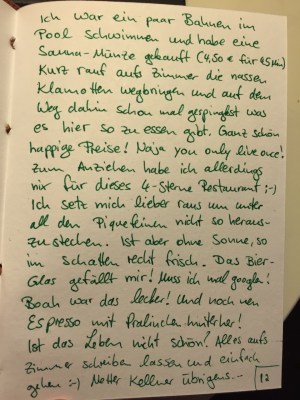 Ich war ein paar Bahnen im
Pool schwimmen und habe eine
Sauna-Münze gekauft (4,50 € für 45 Min)
Kurz rauf aufs Zimmer die nassen
Klamotten wegbringen und auf dem
Weg dahin schon mal gespingkst was
es hier so zu essen gibt. Ganz schön
happige Preise! Naja you only live once!
Zum Anziehen habe ich allerdings
nix für dieses 4-Sterne Restaurant ;-)
Ich setz mich lieber raus um unter
all den Piquefeinen nicht so heraus-
zustechen. Ist aber ohne Sonne, so
im Schatten recht frisch. Das Bier-
Glas gefällt mir! Muss ich mal googlen!
Boah war das lecker! Und noch nen
Espresso mit Pralinchen hinterher!
Ist das Leben nicht schön? Alles aufs
Zimmer schreiben lassen und einfach
gehen :-) Netter Kellner übrigens. -
12